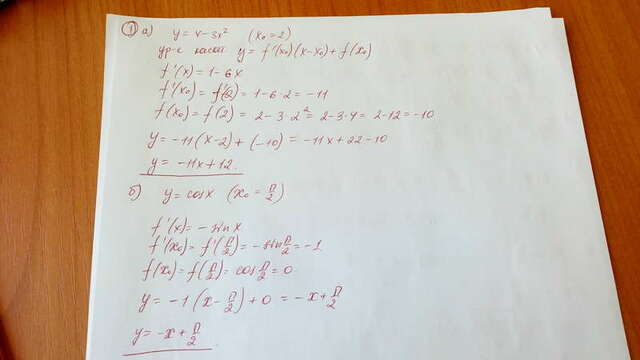 ① а) y = x - 3x² (x₀ = 2)
ур-е касат. y = f'(x₀)(x-x₀) + f(x₀)
f'(x) = 1 - 6x
f'(x₀) = f'(2) = 1 - 6·2 = -11
f(x₀) = f(2) = 2 - 3·2² = 2 - 3·4 = 2 - 12 = -10
y = -11(x-2) + (-10) = -11x + 22 - 10
y = -11x + 12.
б) y = cos x (x₀ = π/2)
f'(x) = - sin x
f'(x₀) = f'(π/2) = - sin π/2 = -1
f(x₀) = f(π/2) = cos π/2 = 0
y = -1(x - π/2) + 0 = -x + π/2
y = -x + π/2